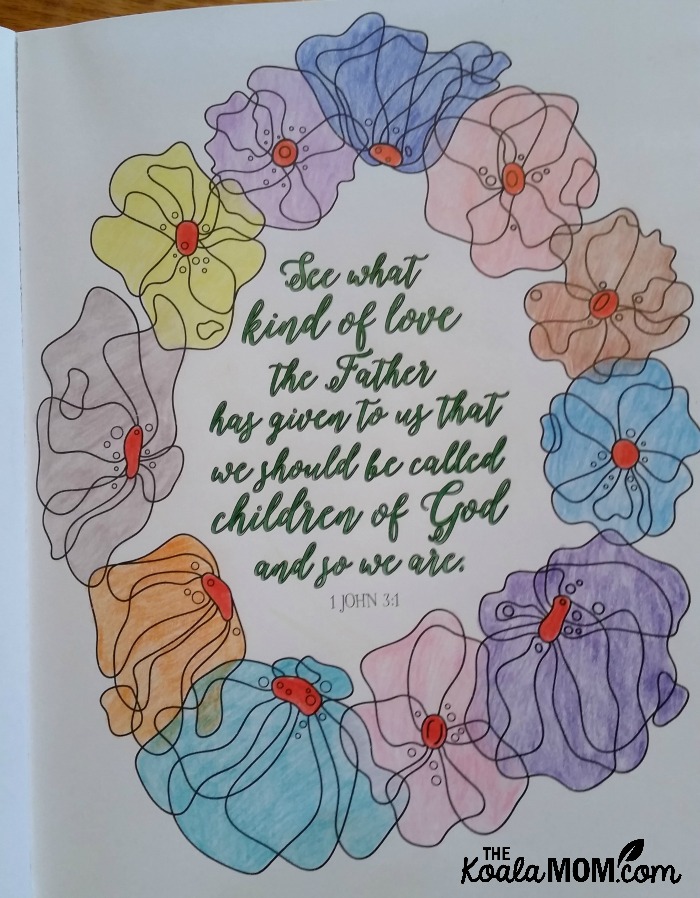 See what
kind of love
the Father
has given to us that
we should be called
children of God
and so we are.
1 JOHN 3:1
THE
KoalaMOM.com